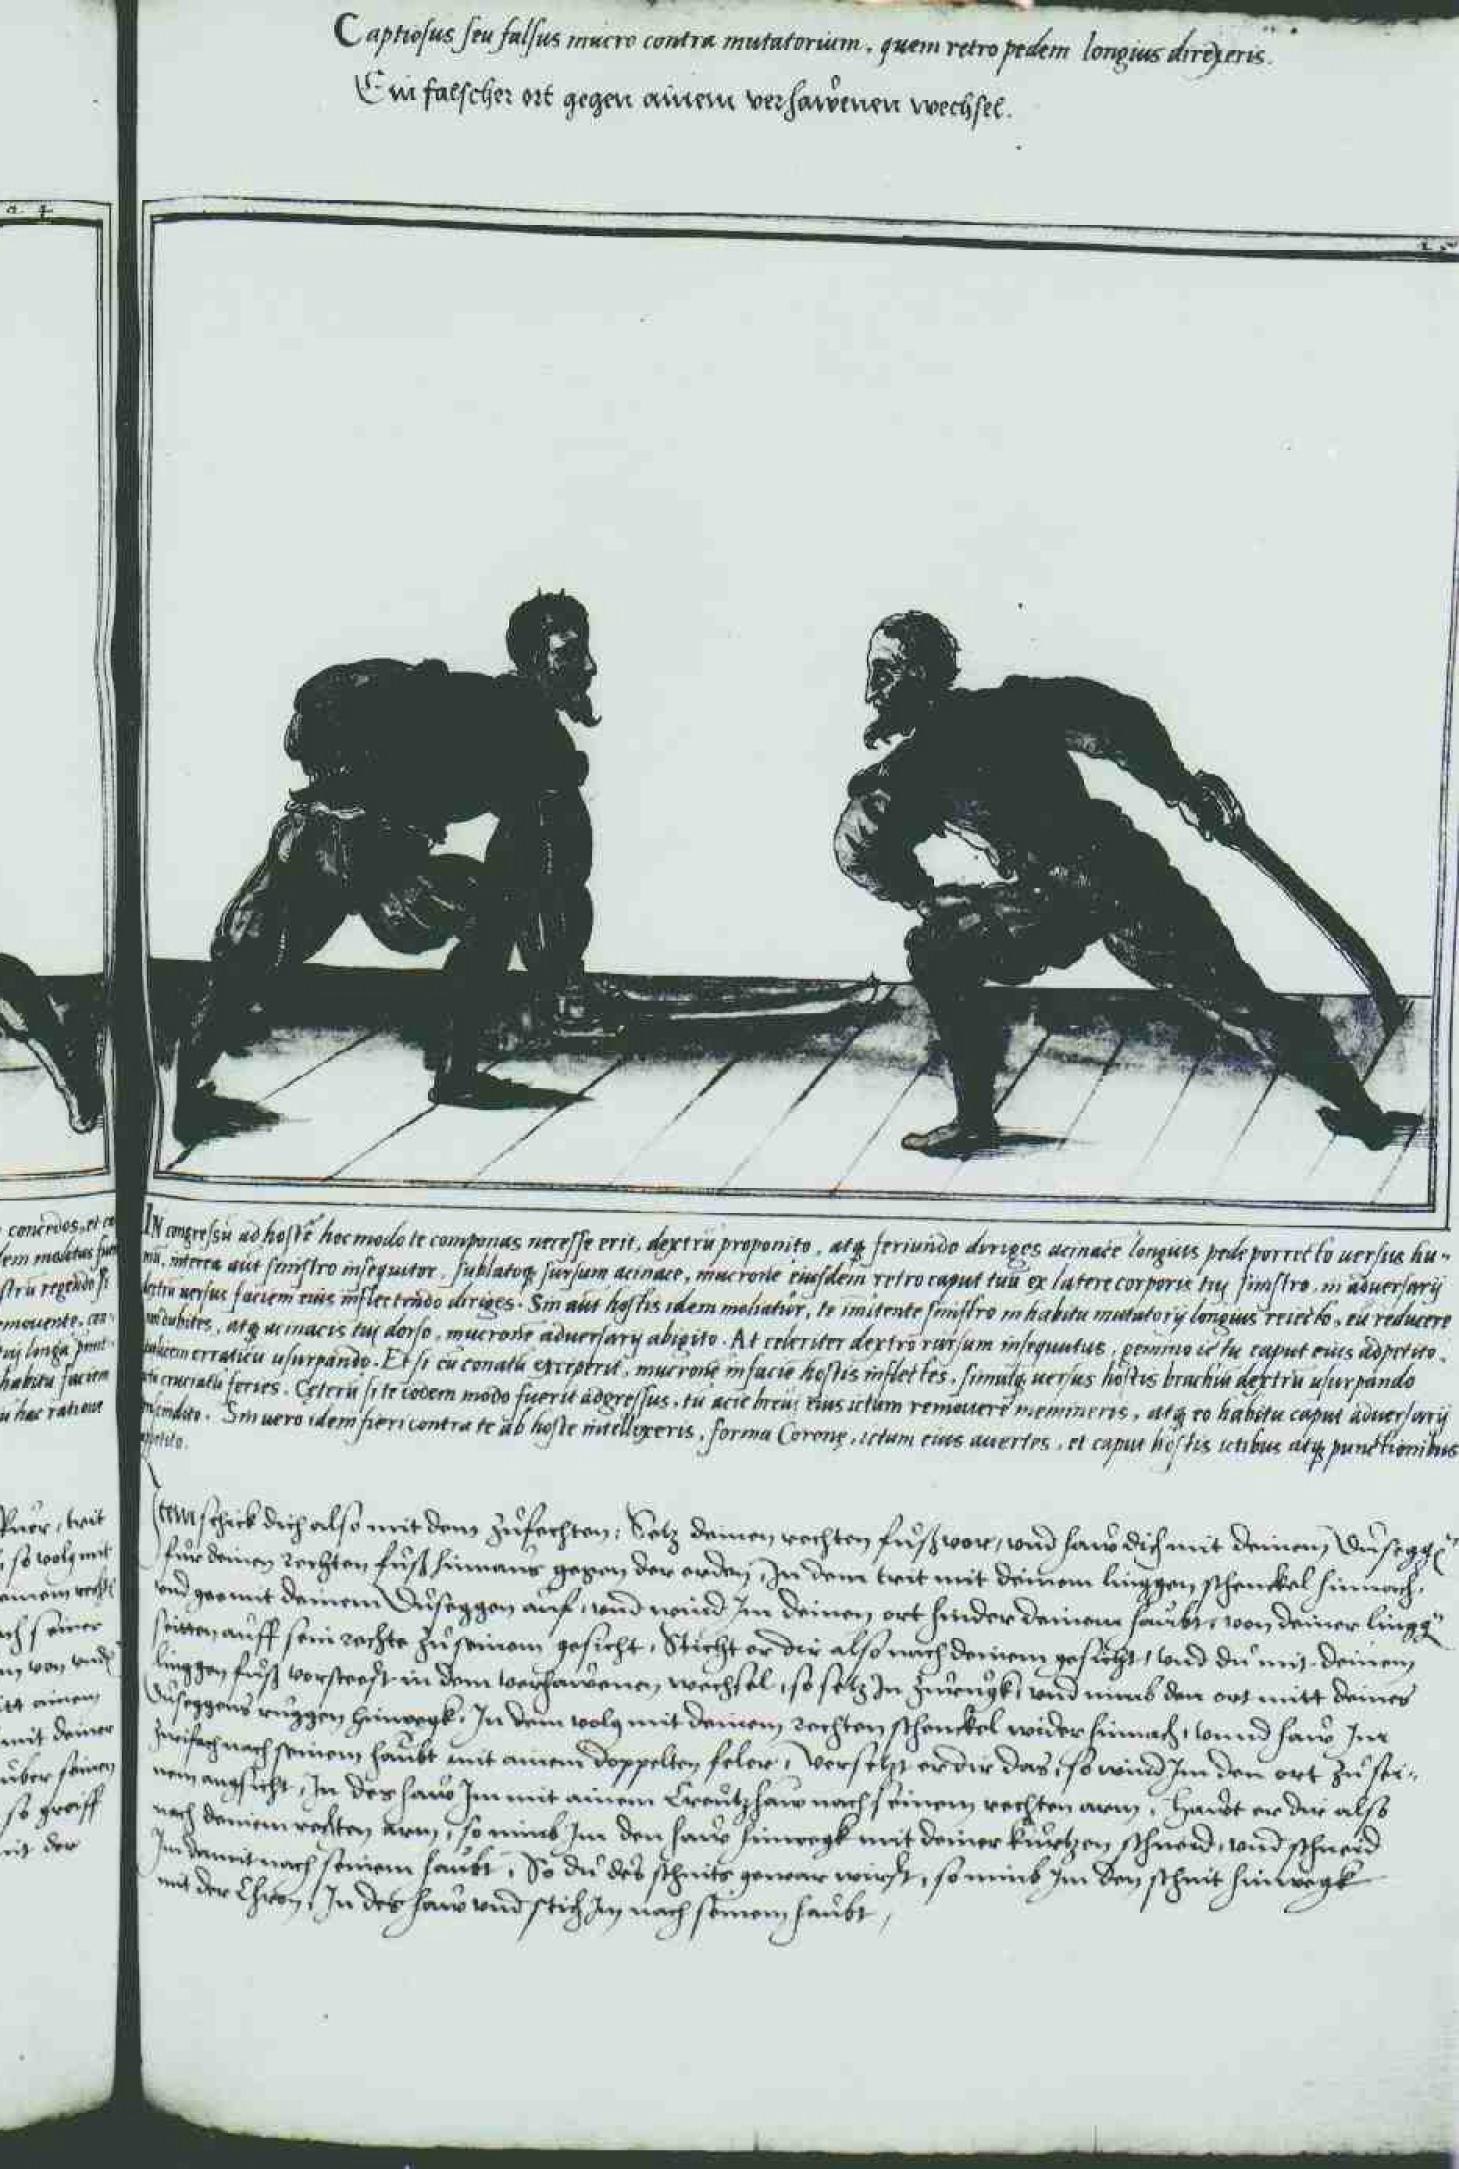 Captiosus seu falsus mucro contra mutatorium, quem retro pedem longius direxeris.
Ein falscher ort gegen ainem verhawenen wechsel.
concedos, et
IN congressu ad hostē hoc modo te componas necesse erit, dextrū proponito, atq̨ feriundo diriges acinace longius pede porrecto uersus hu-
mū, interea aut sinistro insequitor, sublatoq̨ sursum acinace, mucronē eiusdem retro caput tuū ex latere corporis tui sinistro, in aduersarij
dextrū uersus faciem eius inflectendo diriges. Sin aut hostis idem moliatur, te innitente sinistro in habitu mutatorij longius reiecto, eū reducere
non dubites, atq̨ acinacis tui dorso, mucronē aduersarij abigito. At celeriter dextro rursum insequutus, gemino ictu caput eius adpetito,
erraticū usurpando. Et si eū conatū exceperit, mucronē in facie hostis inflectes, simulq̨ uersus hostis brachiū dextrū usurpando
cruciatū feries. Ceterū si te eodem modo fuerit adgressus, tu acie breui eius ictum remouere memineris, atq̨ eo habitu caput aduersarij
inscindito. Sin uero idem fieri contra te ab hoste intellexeris, forma Coronę, ictum eius auertes, et caput hostis ictibus atq̨ punctionibus
adpetito.
Item schick dich also mit dem zufechten, Setz deinen rechten fuß vor, und haw dich mit deinem Duseggē
fur deinen rechten fuß hinaus gegen der erden, In dem trit mit deinem linggen schenckel hinnach,
und gee mit deinem Duseggen auf, und wind Im deinen ort hinder deinem haubt, von deiner linggē
seitten auff sein rechte zu seinem gesicht, Sticht er dir also nach deinem gesicht, und du mit deinem
linggen fuß vorsteest in dem verhawenen wechsel, so setz In zurugk, und nimb den ort mitt deines
Duseggens ruggen hinwegk, In dem volg mit deinem rechten schenckel wider hinnach, unnd haw Im
zwifach nach seinem haubt mit ainem doppelten feler, Versetzt er dir das, so wind Im den ort zu sei-
nem angsicht, In des haw Im mit ainem Creutzhaw nach seinem rechten arm, Hawt er dir also
nach deinem rechten arm, so nimb Im den haw hinwegk mit deiner kurtzen schneid, und schneid
Im damit nach seinem haubt, So du des schnits gewar wirst, so nimb Im den schnit hinwegk
mit der Chron, In des haw und stich Im nach seinem haubt,